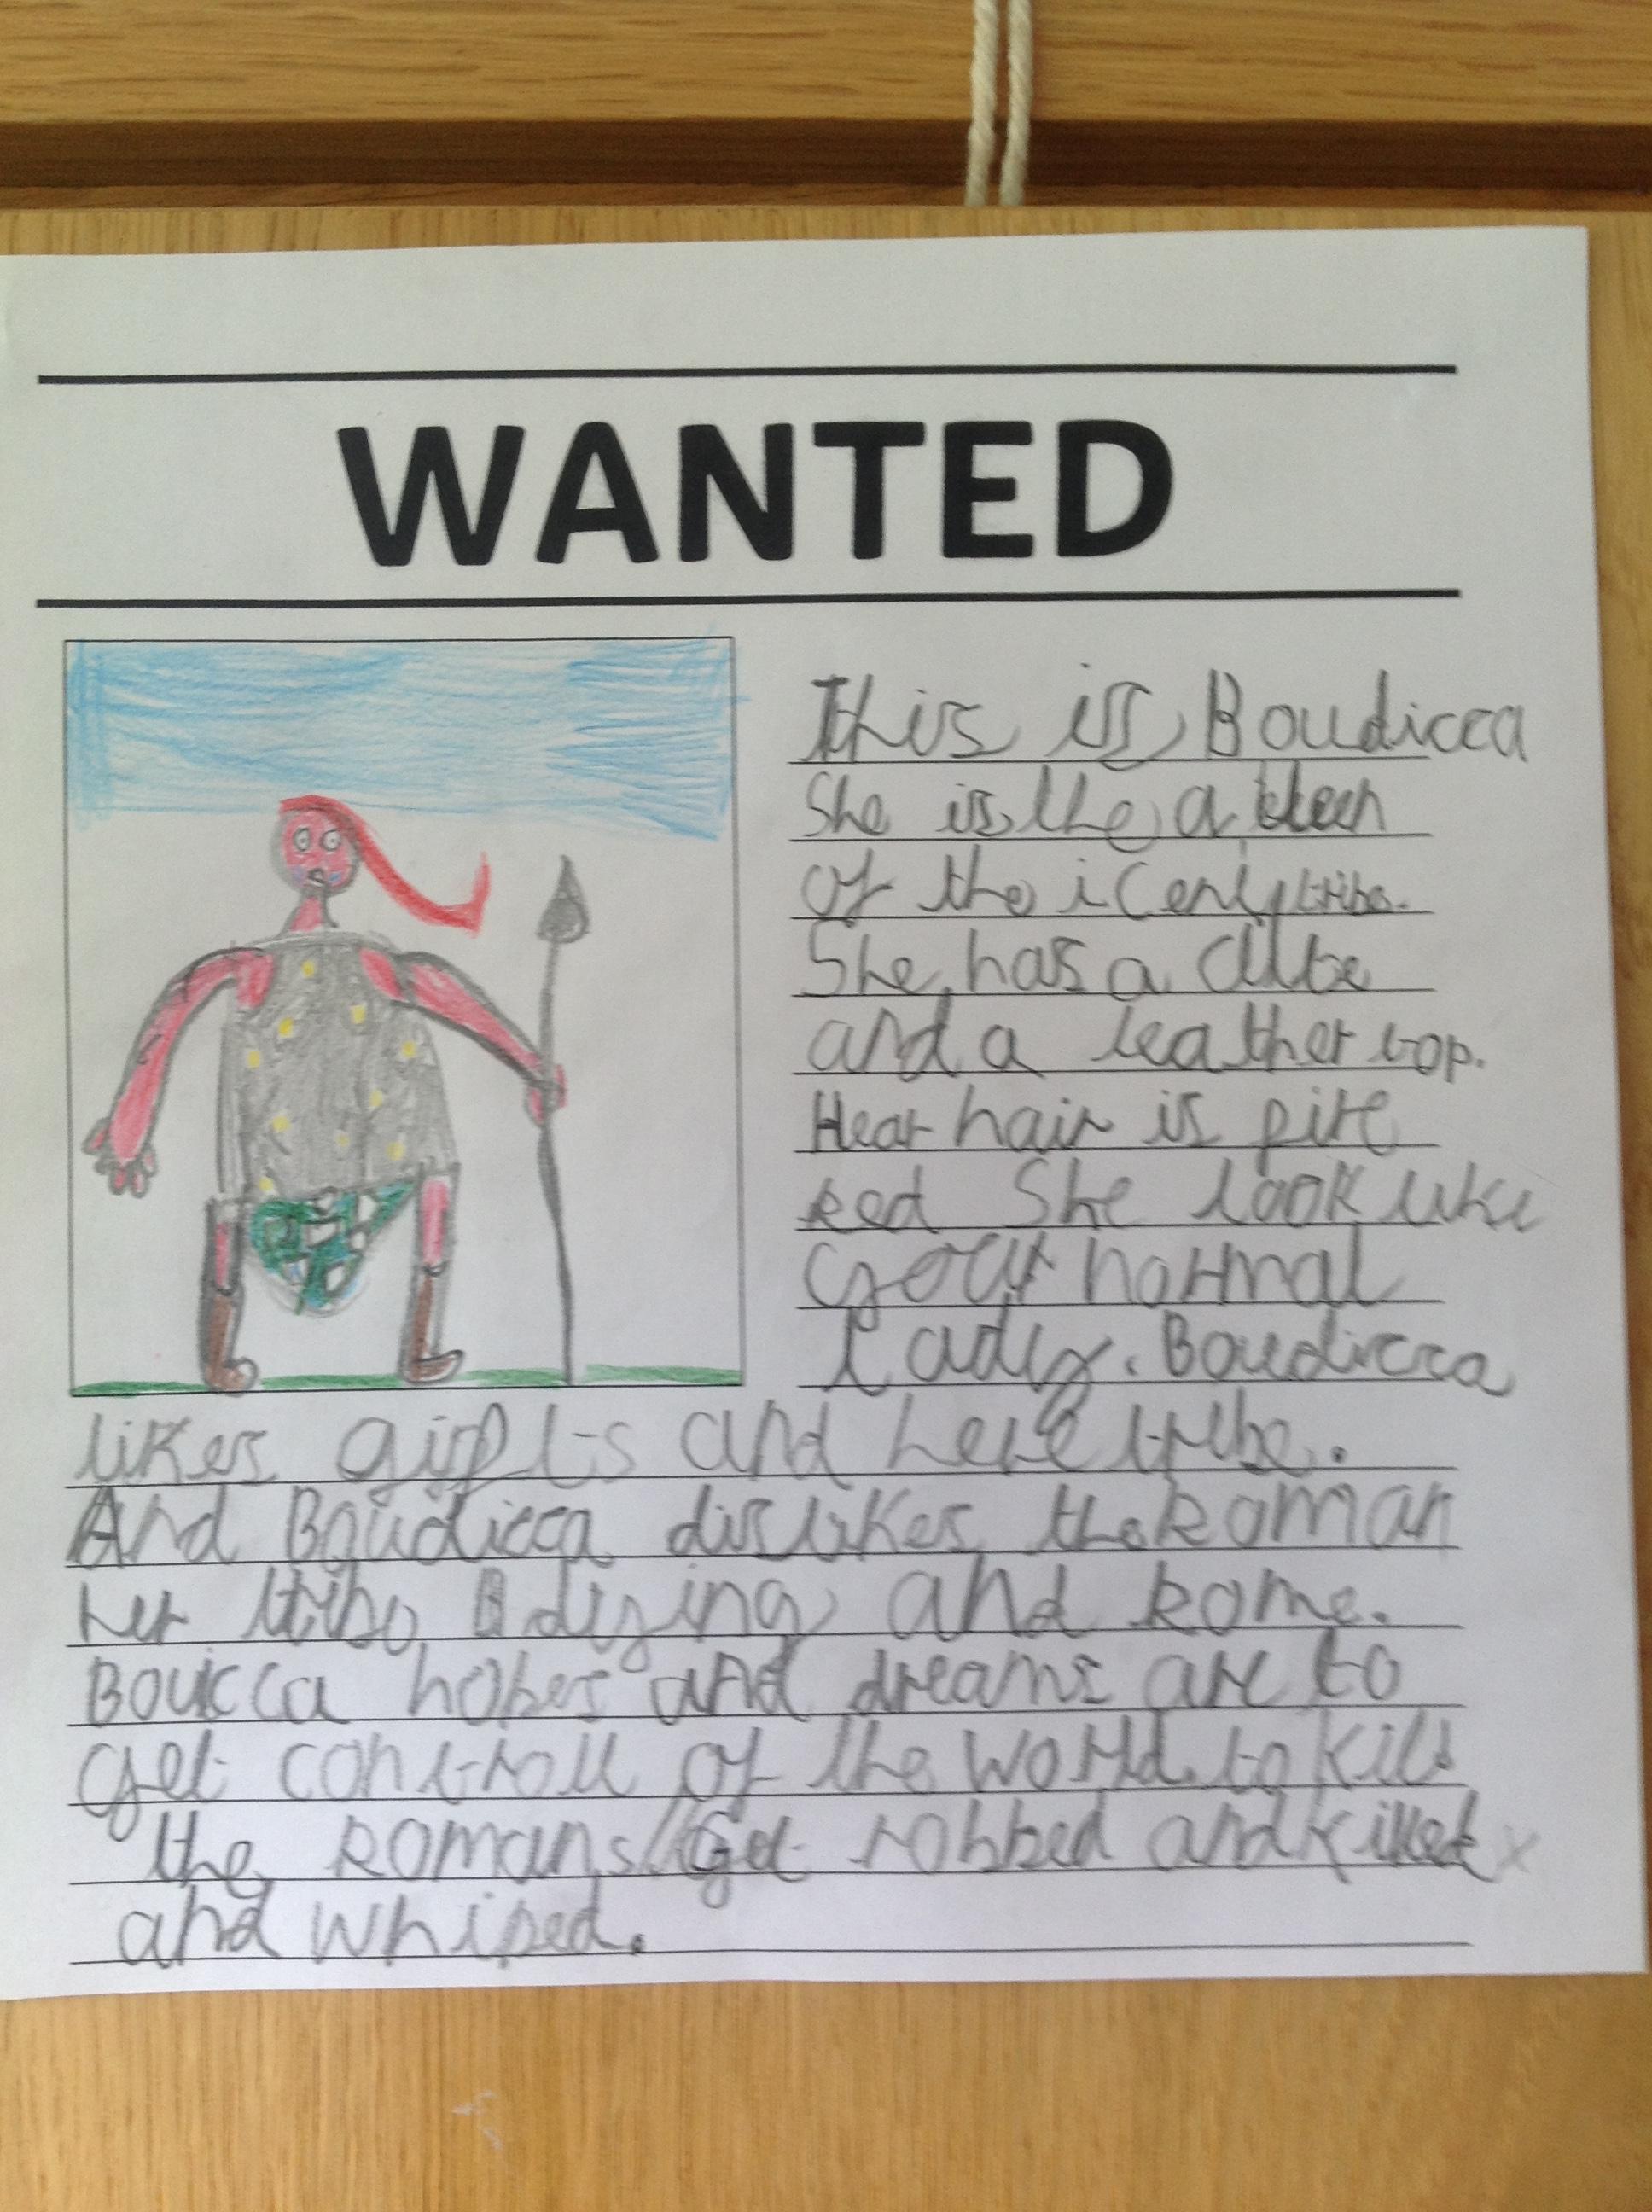 WANTED
This is Boudicca
She is the a
of the iceni tribe.
She has a
and a leather top.
Hear hair is
Red She look like
your normal
Lady. Boudicca
likes and here tribe.
And Boudicca dislikes the Roman
her tribe dying and Rome.
Bouicca hopes and dreams are to
get controll of the World to kill
the Romans // Get robbed and killed x
and whiped.